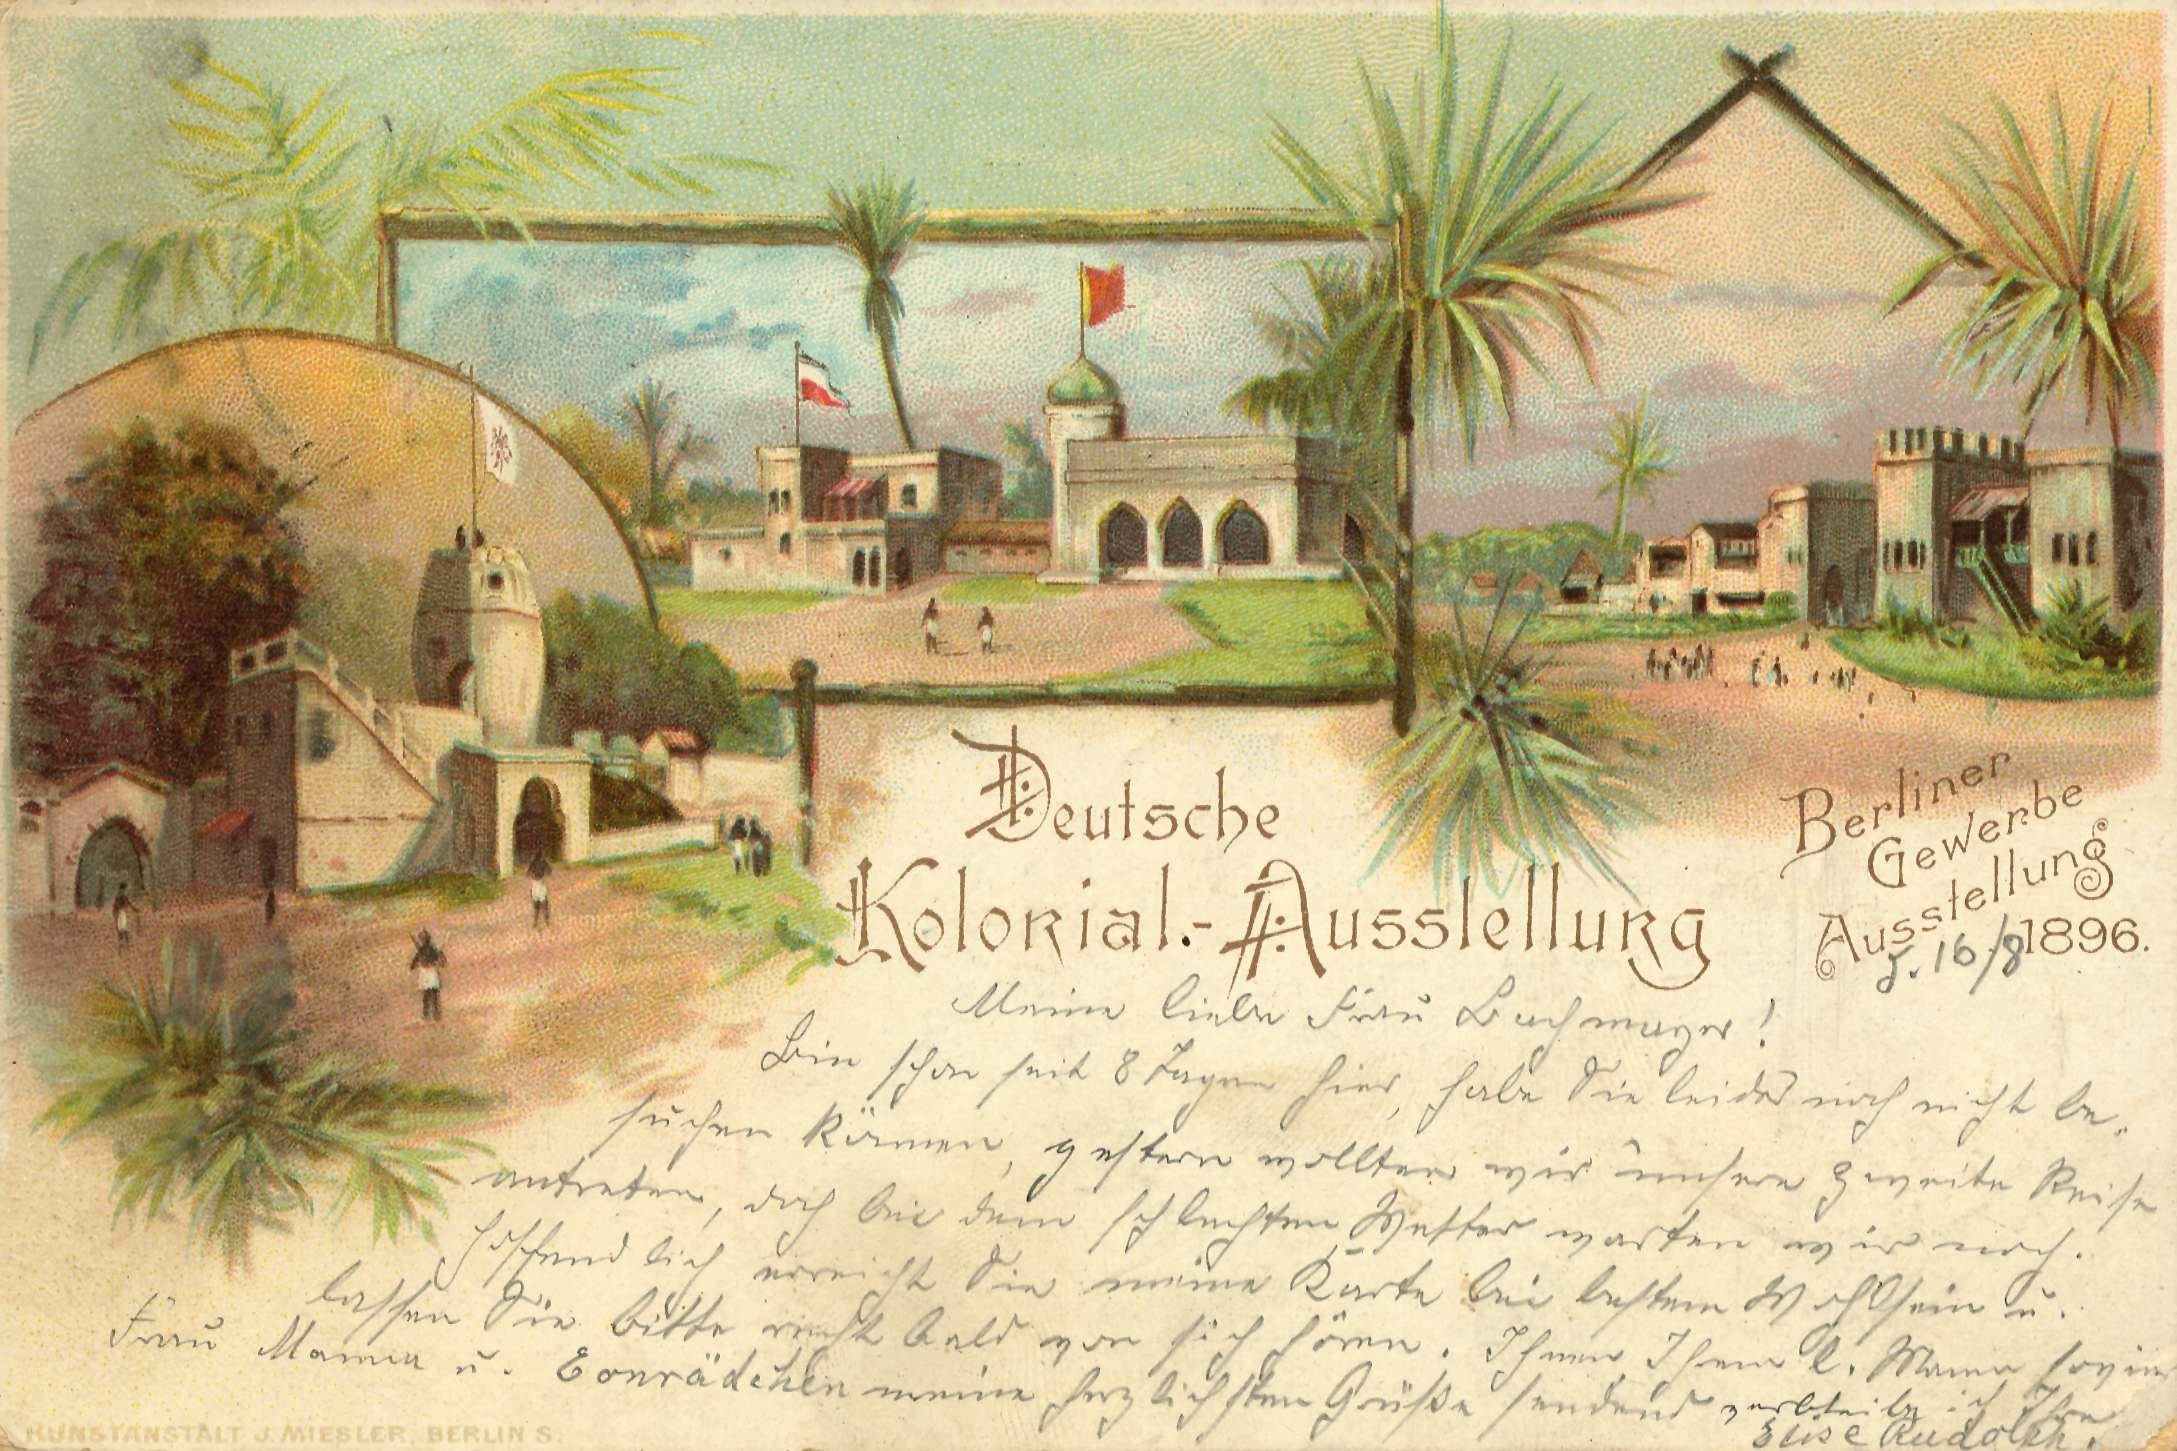 Deutsche
Kolonial.-Ausstellung
Berliner
Gewerbe
Ausstellung
1896.
d. 16/8
Meine liebe Frau Bachmayer!
Bin schon seit 8 Tagen hier, habe Sie leider noch nicht be-
suchen können, gestern wollten wir unsere zweite Reise
antreten, doch bei dem schlechten Wetter warten wir noch.
Hoffendlich erreicht Sie meine Karte bei bestem Wohlsein u.
lassen Sie bitte recht bald von sich hören. Ihnen Ihrem l. Mann sowie
Frau Mama u. Conrädchen meine herzlichsten Grüße sendend verbleibe ich Ihre
Elise Rudolph.
KUNSTANSTALT J. MIESLER, BERLIN S.